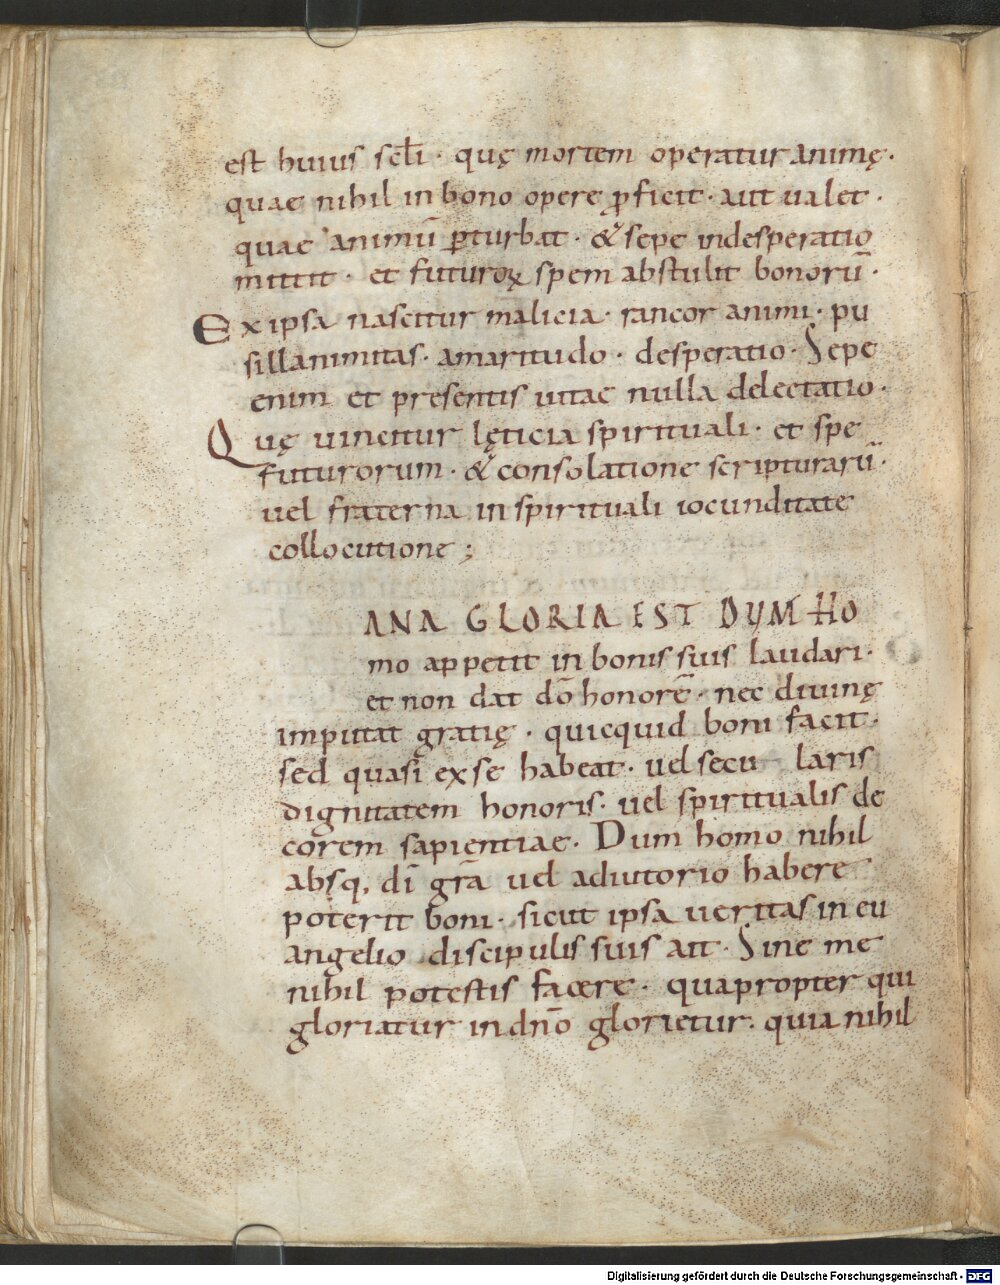 est huius scl̄i · quę mortem operatur animę ·
quae nihil in bono opere ꝓficit · aut ualet ·
quae animū ꝑturbat · & sepe in desperatio
mittit · et futuroꝝ spem abstulit bonorū ·
Ex ipsa nascitur malicia · rancor animi · pu
sillanimitas · amaritudo · desperatio · Sepe
enim et presentis uitae nulla delectatio ·
Quę uincitur lęticia spirituali · et spe
futurorum · & consolatione scripturarū ·
uel fraterna in spirituali iocunditate
collocutione ;
ANA GLORIA EST DUM HO
mo appetit in bonis suis laudari ·
et non dat dō honorē · nec diuinę
imputat gratię · quicquid boni facit ·
sed quasi ex se habeat · uel secu laris
dignitatem honoris · uel spiritualis de
corem sapientiae · Dum homo nihil
absq, dī grā uel adiutorio habere
poterit boni · sicut ipsa ueritas in eu
angelio discipulis suis ait · Sine me
nihil potestis facere · quapropter qui
gloriatur in dn̄o glorietur · quia nihil
Digitalisierung gefördert durch die Deutsche Forschungsgemeinschaft - DFG